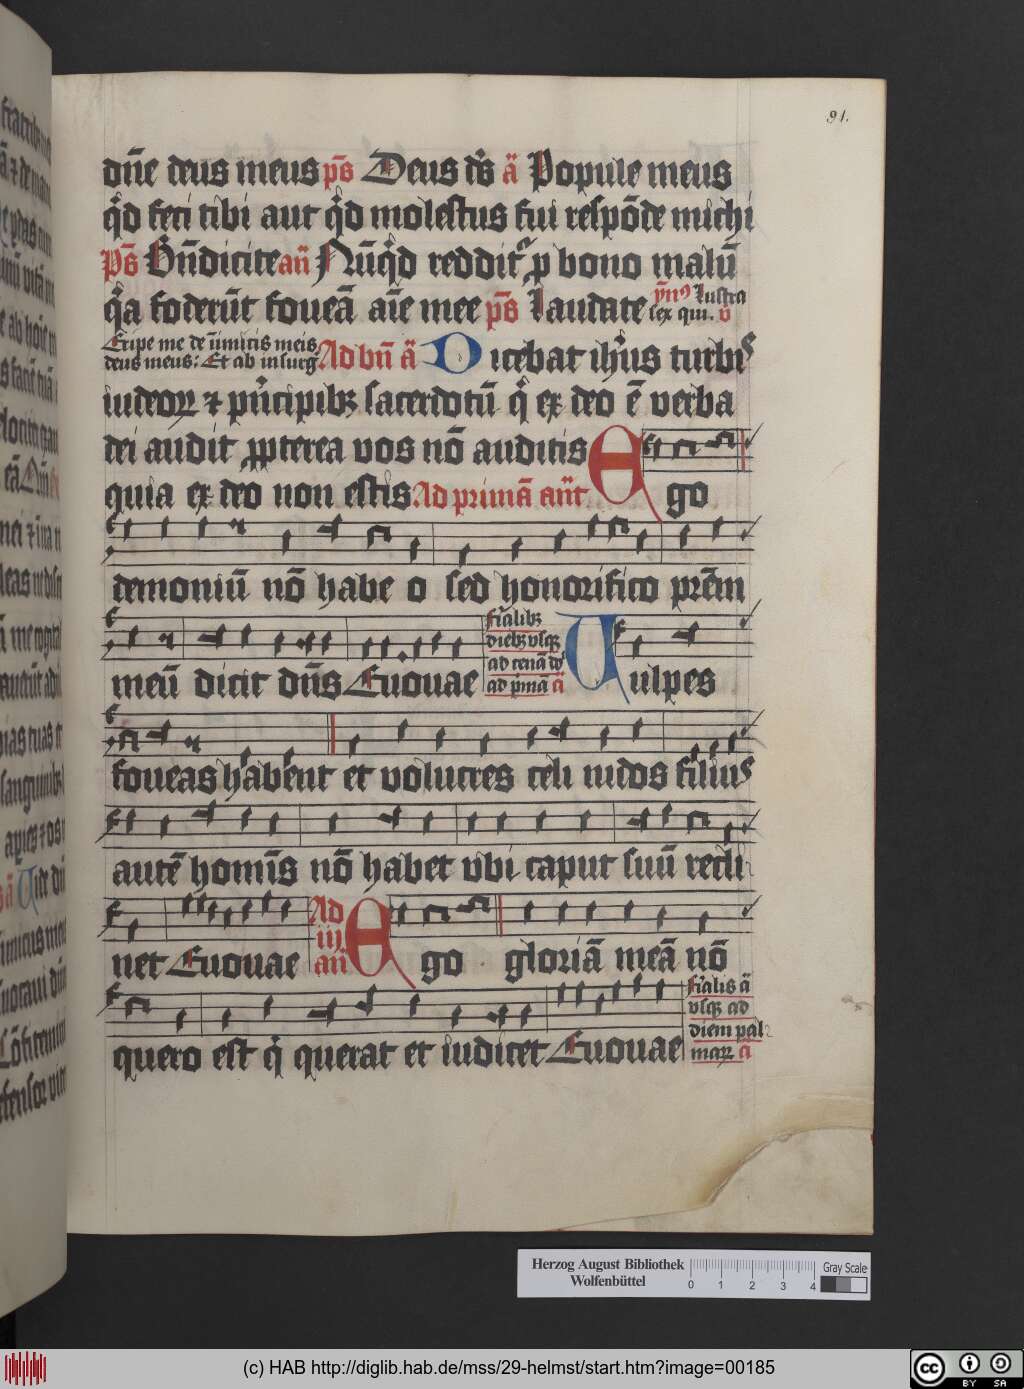 91.
dn̄e deus meus ps̄ Deus ds̄ a͞ Popule meus
qd feci tibi aut qd molestus fui respōde michi
Ps̄ Bn̄dicite an̄ Nūqd reddit͛ p bono malū
qa foderūt foueā aīe mee ps̄ Laudate ym̄⁹ Iustra
sex qui. v
Eripe me de inimicis meis
deus meus: Et ab insurg
Ad bn̄ a͞ Dicebat ih̄us turbis
iudeoꝝ ⁊ pn̄cipibꝫ sacerdotū q̇ ex deo ē verba
dei audit ꝓpterea vos nō auditis Ego
quia ex deo non estis Ad primā ant̄
demoniū nō habe o sed honorifico prēm
meū dicit dn̄s Euouae
fr̄ialibꝫ
diebꝫ vsqꝫ
ad cenā dō
ad p̄mā a͞
Uulpes
foueas habent et volucres celi nidos filius
autē homīs nō habet vbi caput suū recli
net Euouae Ad
iii
an̄
Ego gloriā meā nō
quero est q̇ querat et iudicet Euouae
fr̄ialis a͞
vsqꝫ ad
diem pal
maꝝ a͞
Herzog August Bibliothek
Wolfenbüttel
0 1 2 3 4
Gray Scale
(c) HAB http://diglib.hab.de/mss/29-helmst/start.htm?image=00185
cc BY SA